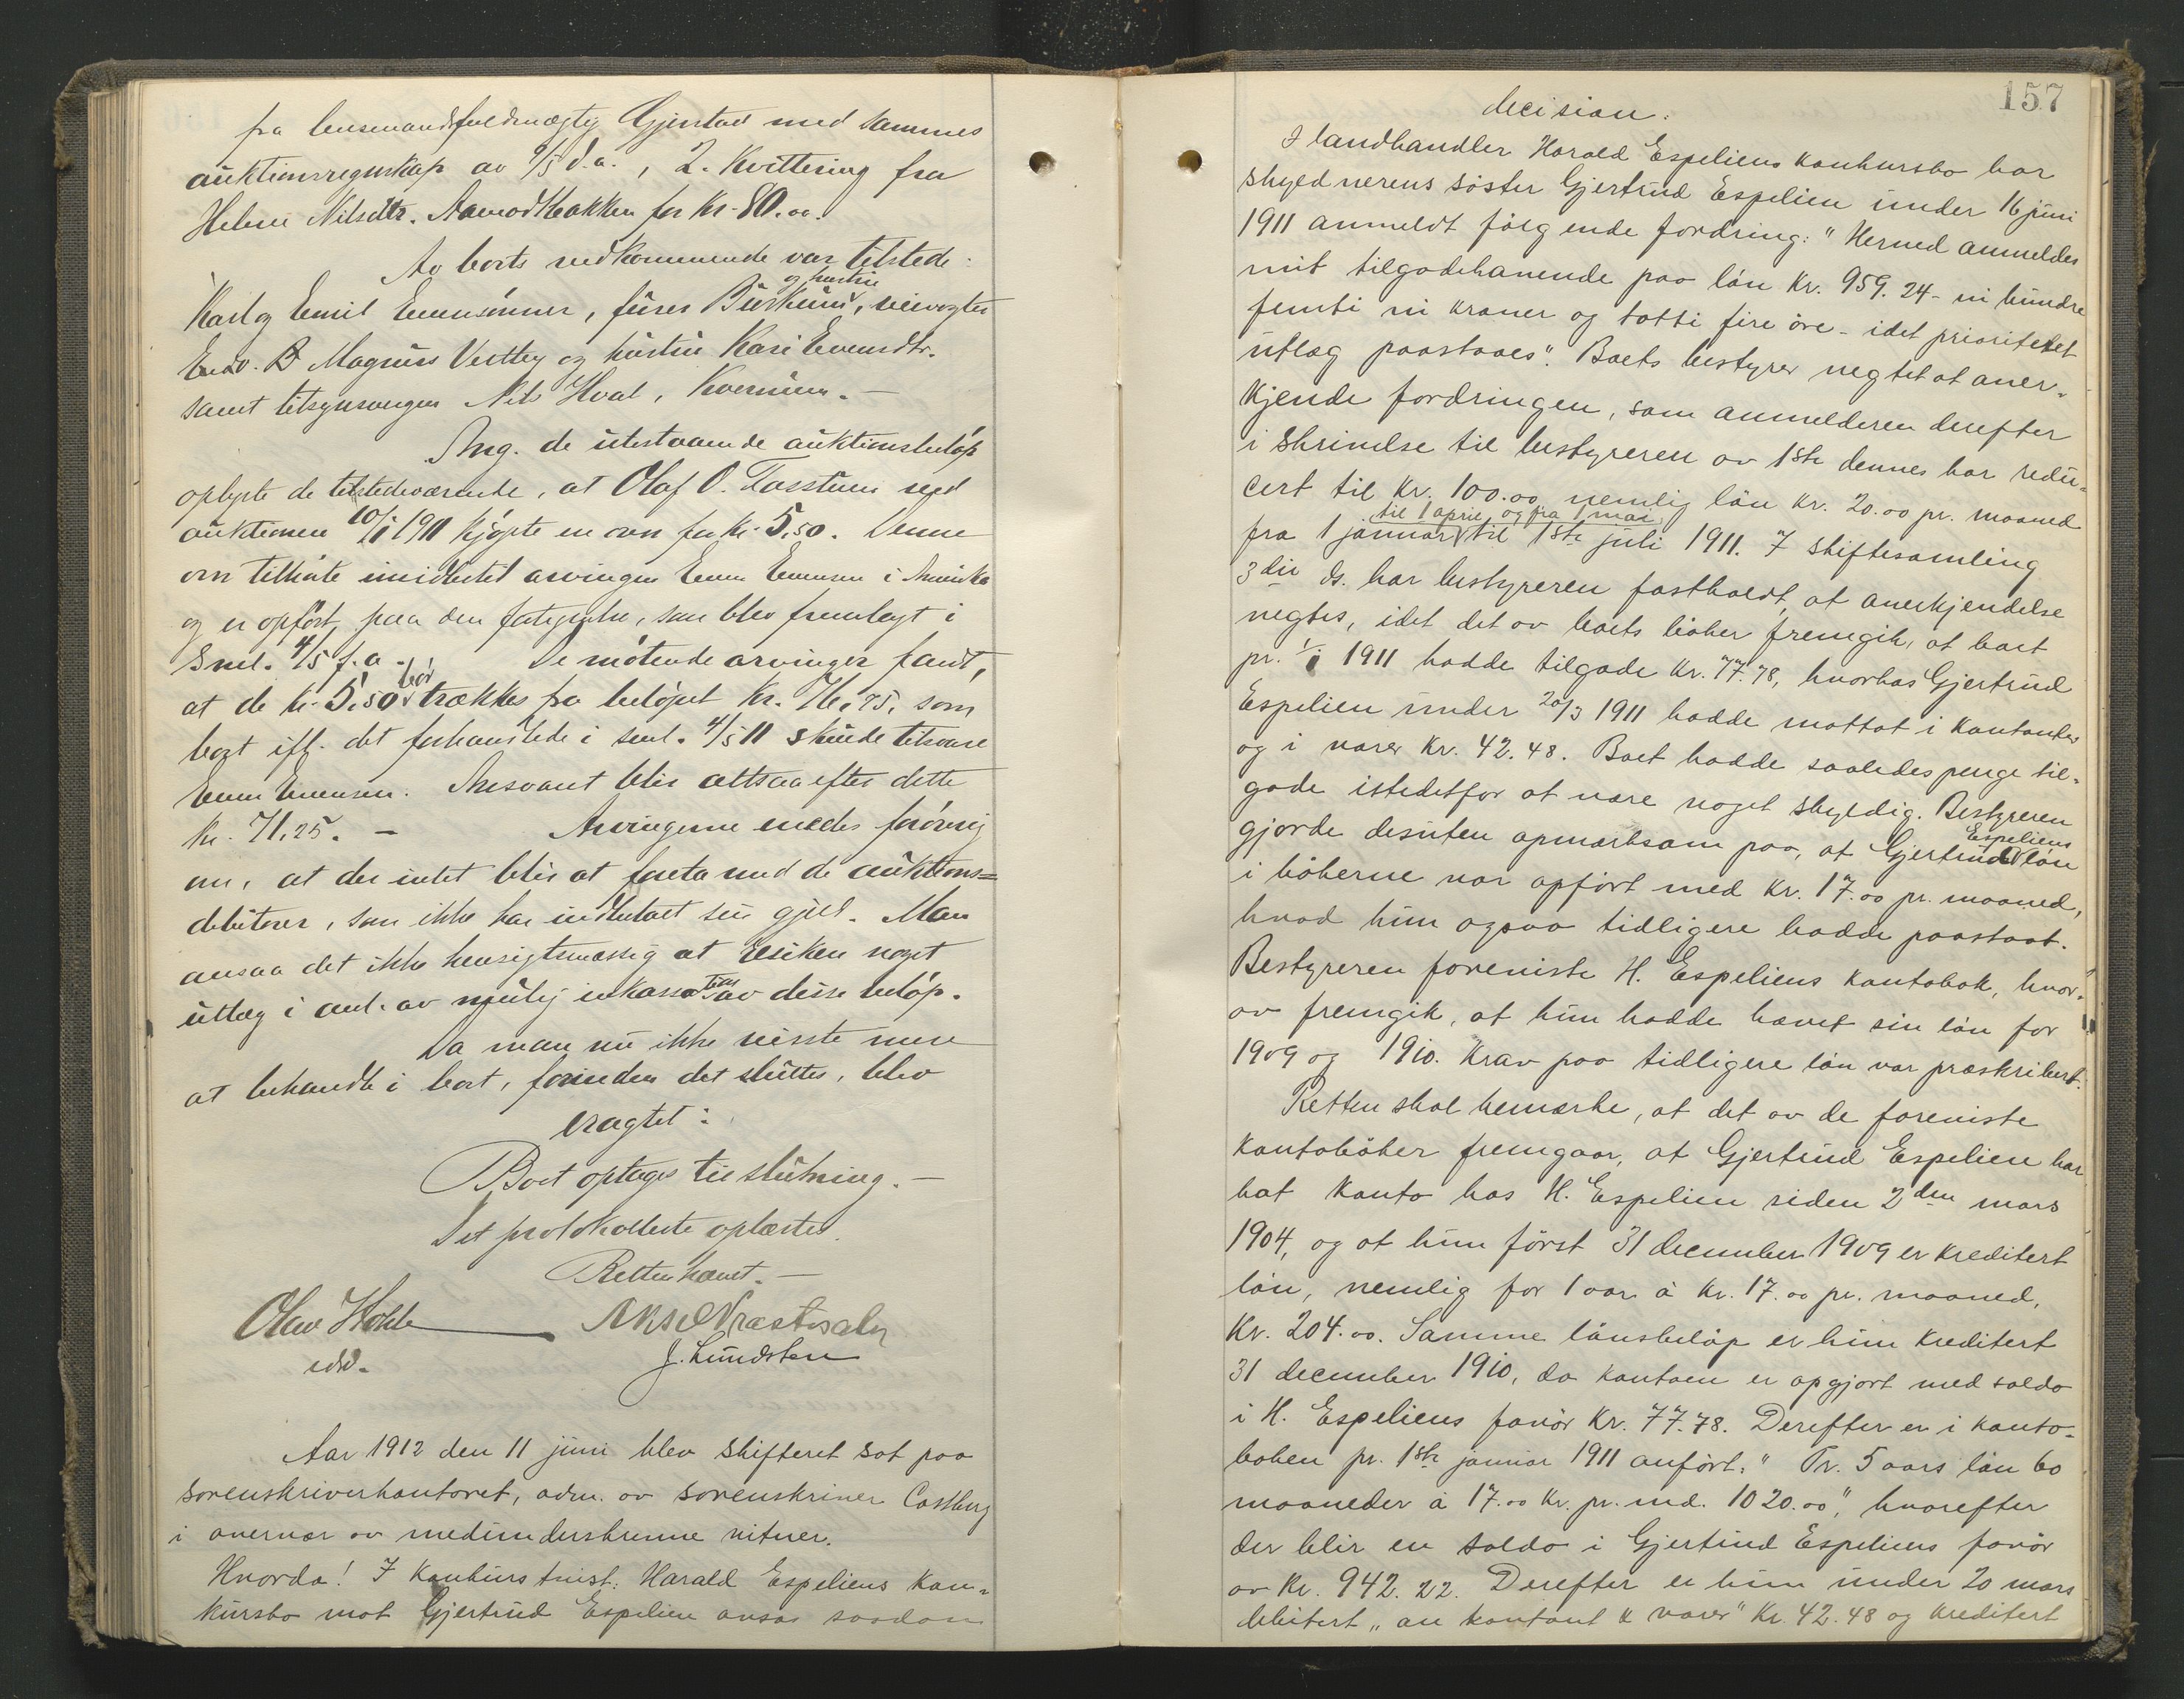 fra lensmandsfuldmægtig Gjerstad med sammes
auktionsregnskap av 9/5 d.a., 2. Kvittering fra
Helene Nilsdtr. Aamodtbakken for kr. 80.00.
Av boets vedkommende var tilstede:
og hustru
Karl og Emil Evensönner, fürer Burkum, veivogter
Edv. B Magnus Vestby og hustru Kari Evensdtr.
samt tilsynsmegen Nils Hval, Kvernum. —
Ang. de utestaaende auktionsbelöp
oplyste de tilstedeværende, at Olaf O. Tosstuen ved
auktionen 10/1 1911 kjöpte en ovn for kr. 5,50. Denne
ovn tilhörte imidlertid arvingen Even Evensen i Amerika
og er opfört paa den fortegnelse, som blev fremlagt i
Sml. 4/5 f.a. De mötende arvinger fandt,
bör
at de kr. 5,50 trækkes fra belöpet kr. 76,75, som
boet ifl. det forhandlede i sml. 4/5 11 skulde tilsvare
Even Evensen. Ansvaret blir altsaa efter dette
kr. 71,25. — Arvingerne enedes forövrig
om, at der intet blir at foreta med de auktions=
debitorer, som ikke har indbetalt sin gjeld. Man
ansaa det ikke hensigtsmæssig at risikere noget
utlæg i anl. av mulig inkassation av disse belöp.
Da man nu ikke visste mere
at behandle i boet, forinden det sluttes, blev
eragtet:
Boet optages til slutning. —
Det protokollerte oplæstes.
Retten hævet. —
Olav Holte
edsv.
Aksel Præstesæter
J. Lundsten
Aar 1912 den 11 juni blev skifteret sat paa
sorenskriverkontoret, adm. av sorenskriver Castberg
i overvær av medunderskrevne vitner.
Hvorda! I Konkurs tvist: Harald Espeliens kon=
kursbo mot Gjertrud Espelien avsas saadan
157
decision:
I landhandler Harald Espeliens konkursbo har
skyldnerens söster Gjertrud Espelien under 16 juni
1911 anmeldt fölgende fordring: "Hermed anmeldes
mit tilgodehavende paa lön kr. 959.24 - ni hundre
femti ni kroner og totti fire öre - idet prioritetet
utlæg paastaaes". Boets bestyrer negtet at aner=
kjende fordringen, som anmelderen derefter
i skrivelse til bestyreren av 1ste dennes har redu=
cert til kr. 100.00 nemlig lön kr. 20.00 pr. maaned
til 1 april og fra 1 mai
fra 1 januar til 1ste juli 1911. I skiftesamling
3die ds. har bestyreren fastholdt, at anerkjendelse
negtes, idet det av boets böker fremgik, at boet
pr. 1/1 1911 hadde tilgode kr. 77.78, hvorhos Gjertrud
Espelien under 20/3 1911 hadde mottat i kontanter
og i varer kr. 42.48. Boet hadde saaledes penge til=
gode istedetfor at være noget skyldig. Bestyreren
Espeliens
gjorde desuten opmerksom paa, at Gjertrud lön
i bökerne var opfört med kr. 17.00 pr. maaned,
hvad hun ogsaa tidligere hadde paastaat.
Bestyreren foreviste H. Espeliens kontobok, hvor=
av fremgik, at hun hadde hævet sin lön for
1909 og 1910. Krav paa tidligere lön var præskribert.
Retten skal bemærke, at det av de foreviste
kontoböker fremgaar, at Gjertrud Espelien har
hat konto hos H. Espelien siden 2den mars
1904, og at hun först 31 december 1909 er kreditert
lön, nemlig for 1 aar à kr. 17.00 pr. maaned,
kr. 204.00. Samme lönsbelöp er hun kreditert
31 december 1910, da kontoen er opgjort med saldo
i H. Espeliens favör kr. 77.78. Derefter er i konto=
boken pr. 1ste januar 1911 anfört: "Pr. 5 aars lön 60
maaneder à 17.00 kr. pr. md. 1020.00", hvorefter
der blir en saldo i Gjertrud Espeliens favör
av kr. 942.22. Derefter er hun under 20 mars
debitert "an kontant & varer" kr. 42.48 og kreditert